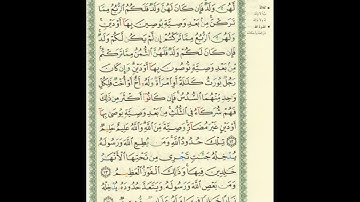 لَّهُنَّ وَلَدٌ فَإِن كَانَ لَهُنَّ وَلَدٌ فَلَكُمُ الرُّبُعُ مِمَّا
تَرَكْنَ مِنۢ بَعْدِ وَصِيَّةٍ يُوصِينَ بِهَآ أَوْ دَيْنٍ
وَلَهُنَّ الرُّبُعُ مِمَّا تَرَكْتُمْ إِن لَّمْ يَكُن لَّكُمْ وَلَدٌ
فَإِن كَانَ لَكُمْ وَلَدٌ فَلَهُنَّ الثُّمُنُ مِمَّا تَرَكْتُم
مِّنۢ بَعْدِ وَصِيَّةٍ تُوصُونَ بِهَآ أَوْ دَيْنٍ وَإِن كَانَ
رَجُلٌ يُورَثُ كَلَٰلَةً أَوِ امْرَأَةٌ وَلَهُۥٓ أَخٌ أَوْ أُخْتٌ فَلِكُلِّ
وَٰحِدٍ مِّنْهُمَا السُّدُسُ فَإِن كَانُوٓا۟ أَكْثَرَ مِن ذَٰلِكَ
فَهُمْ شُرَكَآءُ فِى الثُّلُثِ مِنۢ بَعْدِ وَصِيَّةٍ يُوصَىٰ بِهَآ
أَوْ دَيْنٍ غَيْرَ مُضَآرٍّ وَصِيَّةً مِّنَ اللَّهِ وَاللَّهُ عَلِيمٌ حَلِيمٌ
١٢ تِلْكَ حُدُودُ اللَّهِ وَمَن يُطِعِ اللَّهَ وَرَسُولَهُۥ
يُدْخِلْهُ جَنَّٰتٍ تَجْرِى مِن تَحْتِهَا الْأَنْهَٰرُ
خَٰلِدِينَ فِيهَا وَذَٰلِكَ الْفَوْزُ الْعَظِيمُ
١٣ وَمَن يَعْصِ اللَّهَ وَرَسُولَهُۥ وَيَتَعَدَّ حُدُودَهُۥ يُدْخِلْهُ